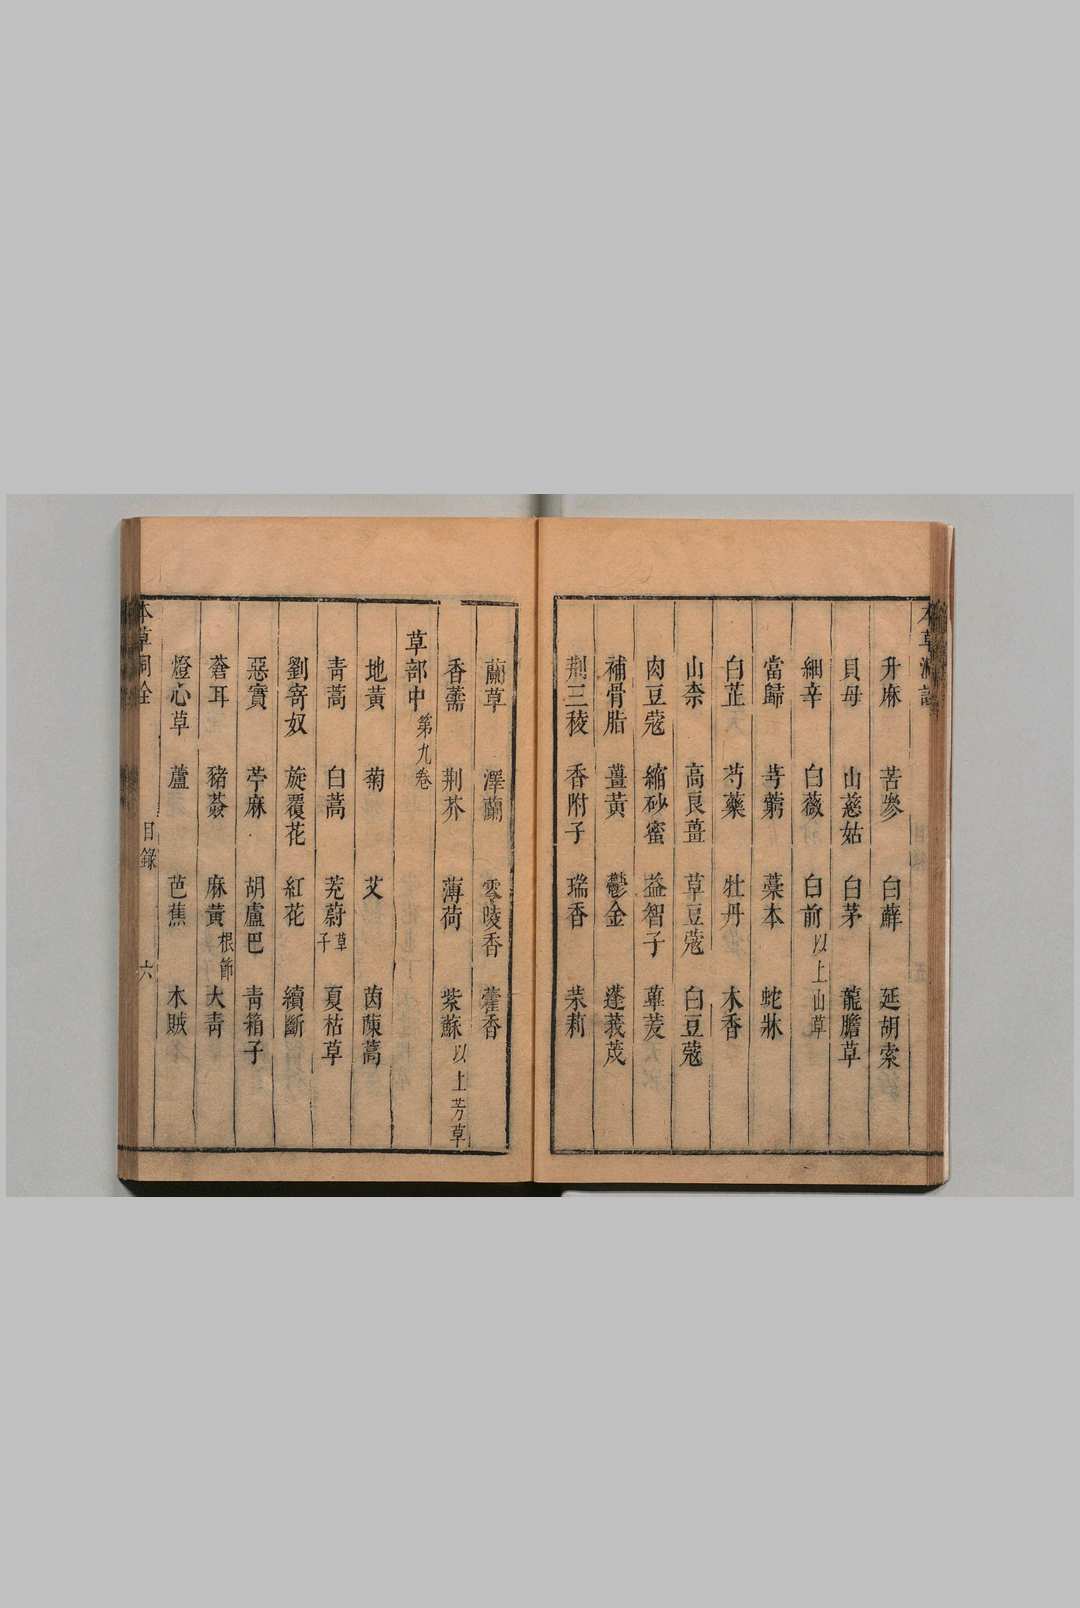 升麻 苦參 白蘚 延胡索
貝母 山慈姑 白茅 龍膽草
細辛 白薇 白前 以上山草
當歸 芎藭 藁本 蛇牀
白芷 芍藥 牡丹 木香
山柰 高良薑 草豆蔻 白豆蔻
肉豆蔻 縮砂蜜 益智子 蓽茇
補骨脂 薑黃 鬱金 蓬莪茂
荆三稜 香附子 瑞香 茉莉
蘭草 澤蘭 零陵香 藿香
香薷 荆芥 薄荷 紫蘇 以上芳草
草部中 第九卷
地黃 菊 艾 茵蔯蒿
青蒿 白蒿 茺蔚草子 夏枯草
劉寄奴 旋覆花 紅花 續斷
惡實 苧麻 胡盧巴 青箱子
蒼耳 豬薟 麻黃根節 大青
燈心草 蘆 芭蕉 木賊
本草洞詮 目錄 六